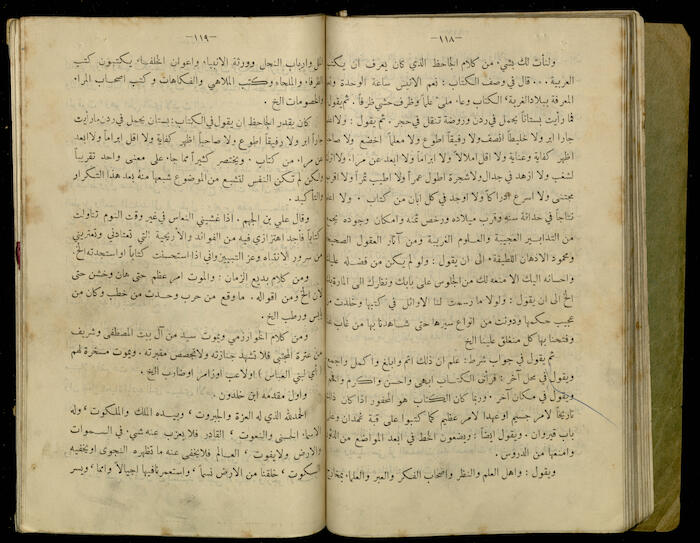 —١١٨—
ولنأت لك بشيء من كلام الجاحظ الذي كان يعرف ان يكتب
العربية ... قال في وصف الكتاب : نعم الانيس ساعة الوحدة ونعم
المعرفة ببلاد الغربة الكتاب وعاء ملئ علماً وظرف حشي ظرفاً . ثم يقول
فما رأيت بستاناً يحمل في ردن وروضة تنقل في حجر . ثم يقول : ولا اعلم
جارا ابر ولا خليطاً انصف ولا رفيقاً اطوع ولا معلماً اخضع ولا صاحباً
اظهر كفاية وعناية ولا اقل املالاً ولا ابراماً ولا ابعد عن مراء ولا اترك
لشغب ولا ازهد في جدال ولا شجرة اطول عمراً ولا اطيب ثمراً ولا اقرب
مجتنى ولا اسرع ادراكاً ولا اوجد في كل ابان من كتاب . ولا اعلم
نتاجاً في حداثة سنه وقرب ميلاده ورخص ثمنه وامكان وجوده يجمع
من التدابير العجيبة والعلوم الغريبة ومن آثار العقول الصحيحة
ومحمود الاذهان اللطيفة الى ان يقول : ولو لم يكن من فضله عليك
واحسانه اليك الا منعه لك من الجلوس على بابك ونظرك الى المارة بك
الخ الى ان يقول : ولولا ما رسمت لنا الاوائل في كتبها وخلدت من
عجيب حكمها ودونت من انواع سيرها حتى شاهدنا بها من غاب عنا
وفتحنا بها كل منغلق علينا الخ
ثم يقول في جواب شرط : علم ان ذلك اتم وابلغ واكمل واجمع
ويقول في محل آخر : فرأى الكتاب ابهى واحسن واكرم
ويقول في مكان آخر . وربما كان الكتاب هو المحفور اذا كان ذلك
تاريخاً لامر جسيم او عهدا لامر عظيم كما كتبوا على قبة غمدان وعلى
باب قيروان . ويقول ايضاً : ويضعون الخط في ابعد المواضع من الدثور
وامنعها من الدروس .
ويقول : واهل العلم والنظر واصحاب الفكر والعبر والعلماء بمخارج
—١١٩—
الملل وارباب النحل وورثة الانبياء واعوان الخلفاء يكتبون كتب
الظرفاء والملحاء وكتب الملاهي والفكاهات وكتب اصحاب المراء
والخصومات الخ .
كان يقدر الجاحظ ان يقول في الكتاب : بستان يحمل في ردن مارأيت
جارا ابر ولا رفيقاً اطوع ولا صاحباً اظهر كفاية ولا اقل ابراماً ولا ابعد
عن مراء من كتاب . ويختصر كثيراً مما جاء على معنى واحد تقريباً
ولكن لم تكن النفس لتشبع من الموضوع شبعها منه بعد هذا التكرار
والتأكيد .
وقال علي بن الجهم . اذا غشيني النعاس في غير وقت النوم تناولت
كتاباً فأجد اهتزازي فيه من الفوائد والأريحية التي تعتادني وتعتريني
من سرور الانتباه وعز التبيين واني اذا استحسنت كتاباً او استجدته الخ.
ومن كلام بديع الزمان : والموت امر عظم حتى هان وخشن حتى
لان الخ ومن اقواله . ما وقع من حرب وحدث من خطب وكان من
يابس ورطب الخ .
ومن كلام الخوارزمي ويموت سيد من آل بيت المصطفى وشريف
من عترة المجتبى فلا تشهد جنازته ولا تجصص مقبرته . ويموت مسخرة لهم
( أي لبني العباس ) او لاعب او زامر او ضارب الخ .
واول مقدمة ابن خلدون .
الحمد لله الذي له العزة والجبروت ، وبيده الملك والملكوت ، وله
الاسماء الحسنى والنعوت ، القادر فلا يعزب عنه شيء في السموات
والارض ولا يفوت ، العالم فلا يخفى عنه ما تظهره النجوى او يخفيه
السكوت ، خلقنا من الارض نسماً ، واستعمرنا فيها اجيالاً وامماً ، ويسر